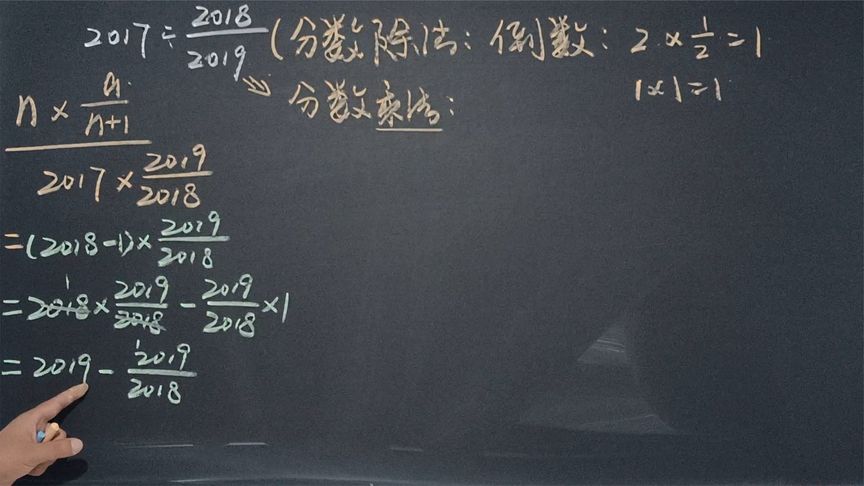 2017÷2018/2019 (分数除法: 倒数: 2×1/2=1
⇒ 分数乘法: 1×1=1
n×a/n+1
2017×2019/2018
=(2018-1)×2019/2018
=2018×2019/2018-2019/2018×1
=2019-2019/2018